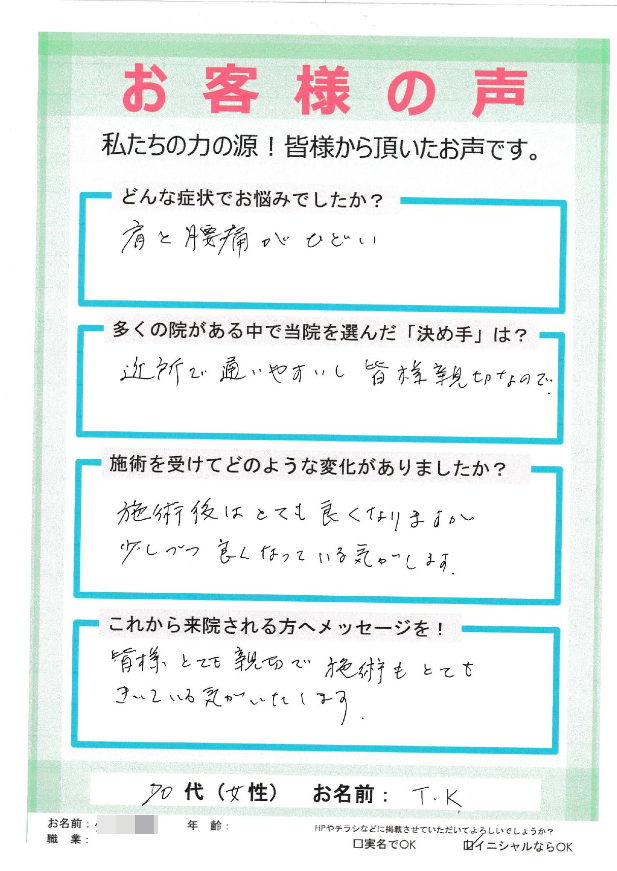 お客様の声
私たちの力の源！皆様から頂いたお声です。
どんな症状でお悩みでしたか？
肩と腰痛がひどい
多くの院がある中で当院を選んだ「決め手」は？
近所で通いやすいし皆様親切なので.
施術を受けてどのような変化がありましたか？
施術後はとても良くなりますが
少しづつ良くなっている気がします.
これから来院される方へメッセージを！
皆様とても親切で施術もとても
きいている気がいたします.
70代（女性） お名前：T.K
お名前： 年 齢：
職 業：
HPやチラシなどに掲載させていただいてよろしいでしょうか？
□実名でOK ☑イニシャルならOK